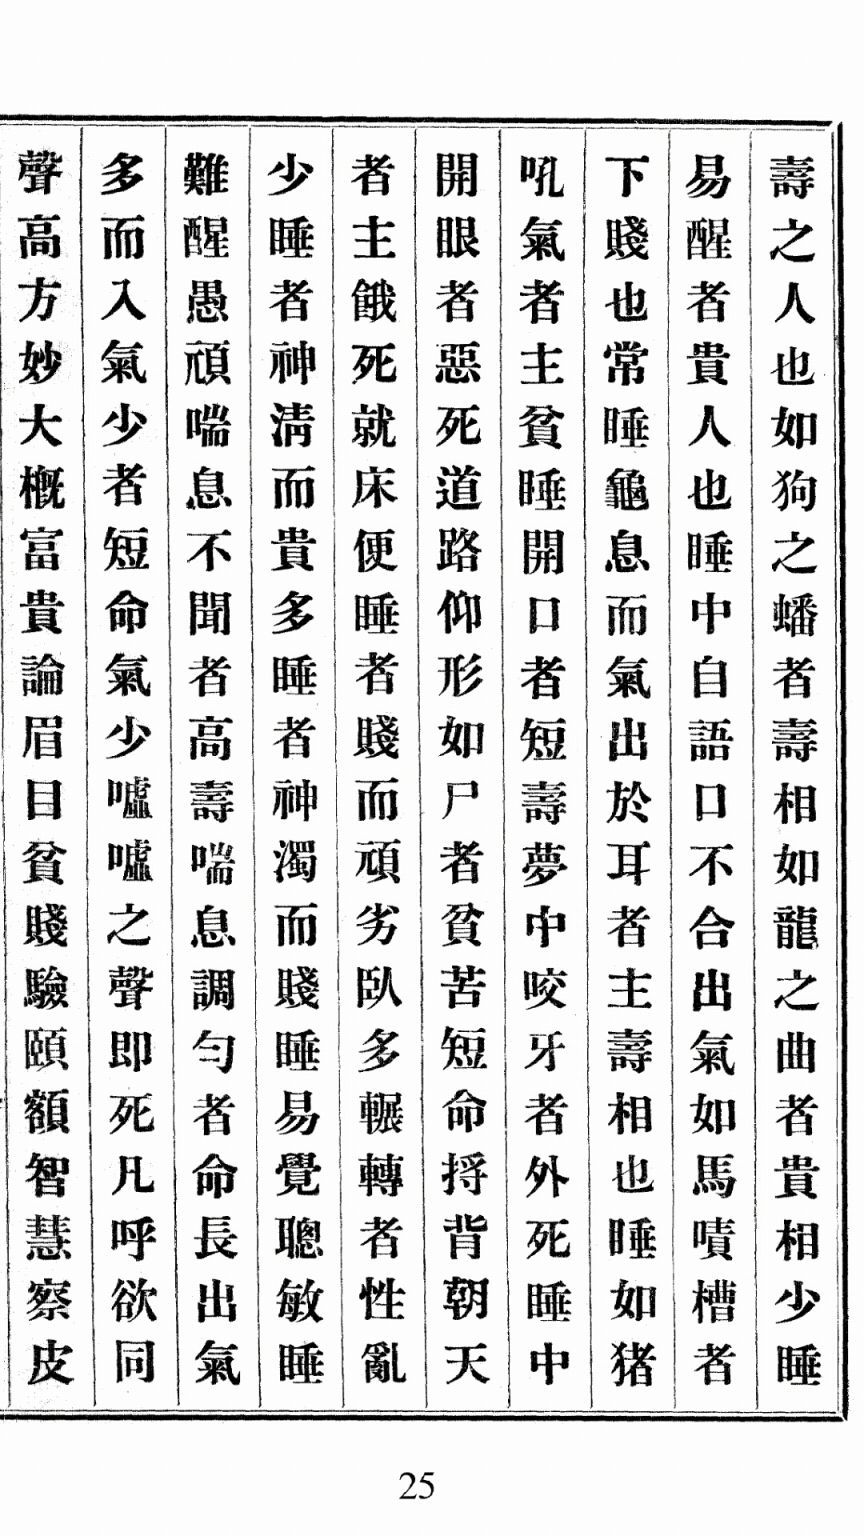 壽之人也如狗之蟠者壽相如龍之曲者貴相少睡
易醒者貴人也睡中自語口不合出氣如馬嘖槽者
下賤也常睡龜息而氣出於耳者主壽相也睡如猪
吼氣者主貧睡開口者短壽夢中咬牙者外死睡中
開眼者惡死道路仰形如尸者貧苦短命捋背朝天
者主餓死就床便睡者賤而頑劣臥多輾轉者性亂
少睡者神淸而貴多睡者神濁而賤睡易覺聰敏睡
難醒愚頑喘息不聞者高壽喘息調勻者命長出氣
多而入氣少者短命氣少噓噓之聲即死凡呼欲同
聲高方妙大槪富貴論眉目貧賤驗頤額智慧察皮
25